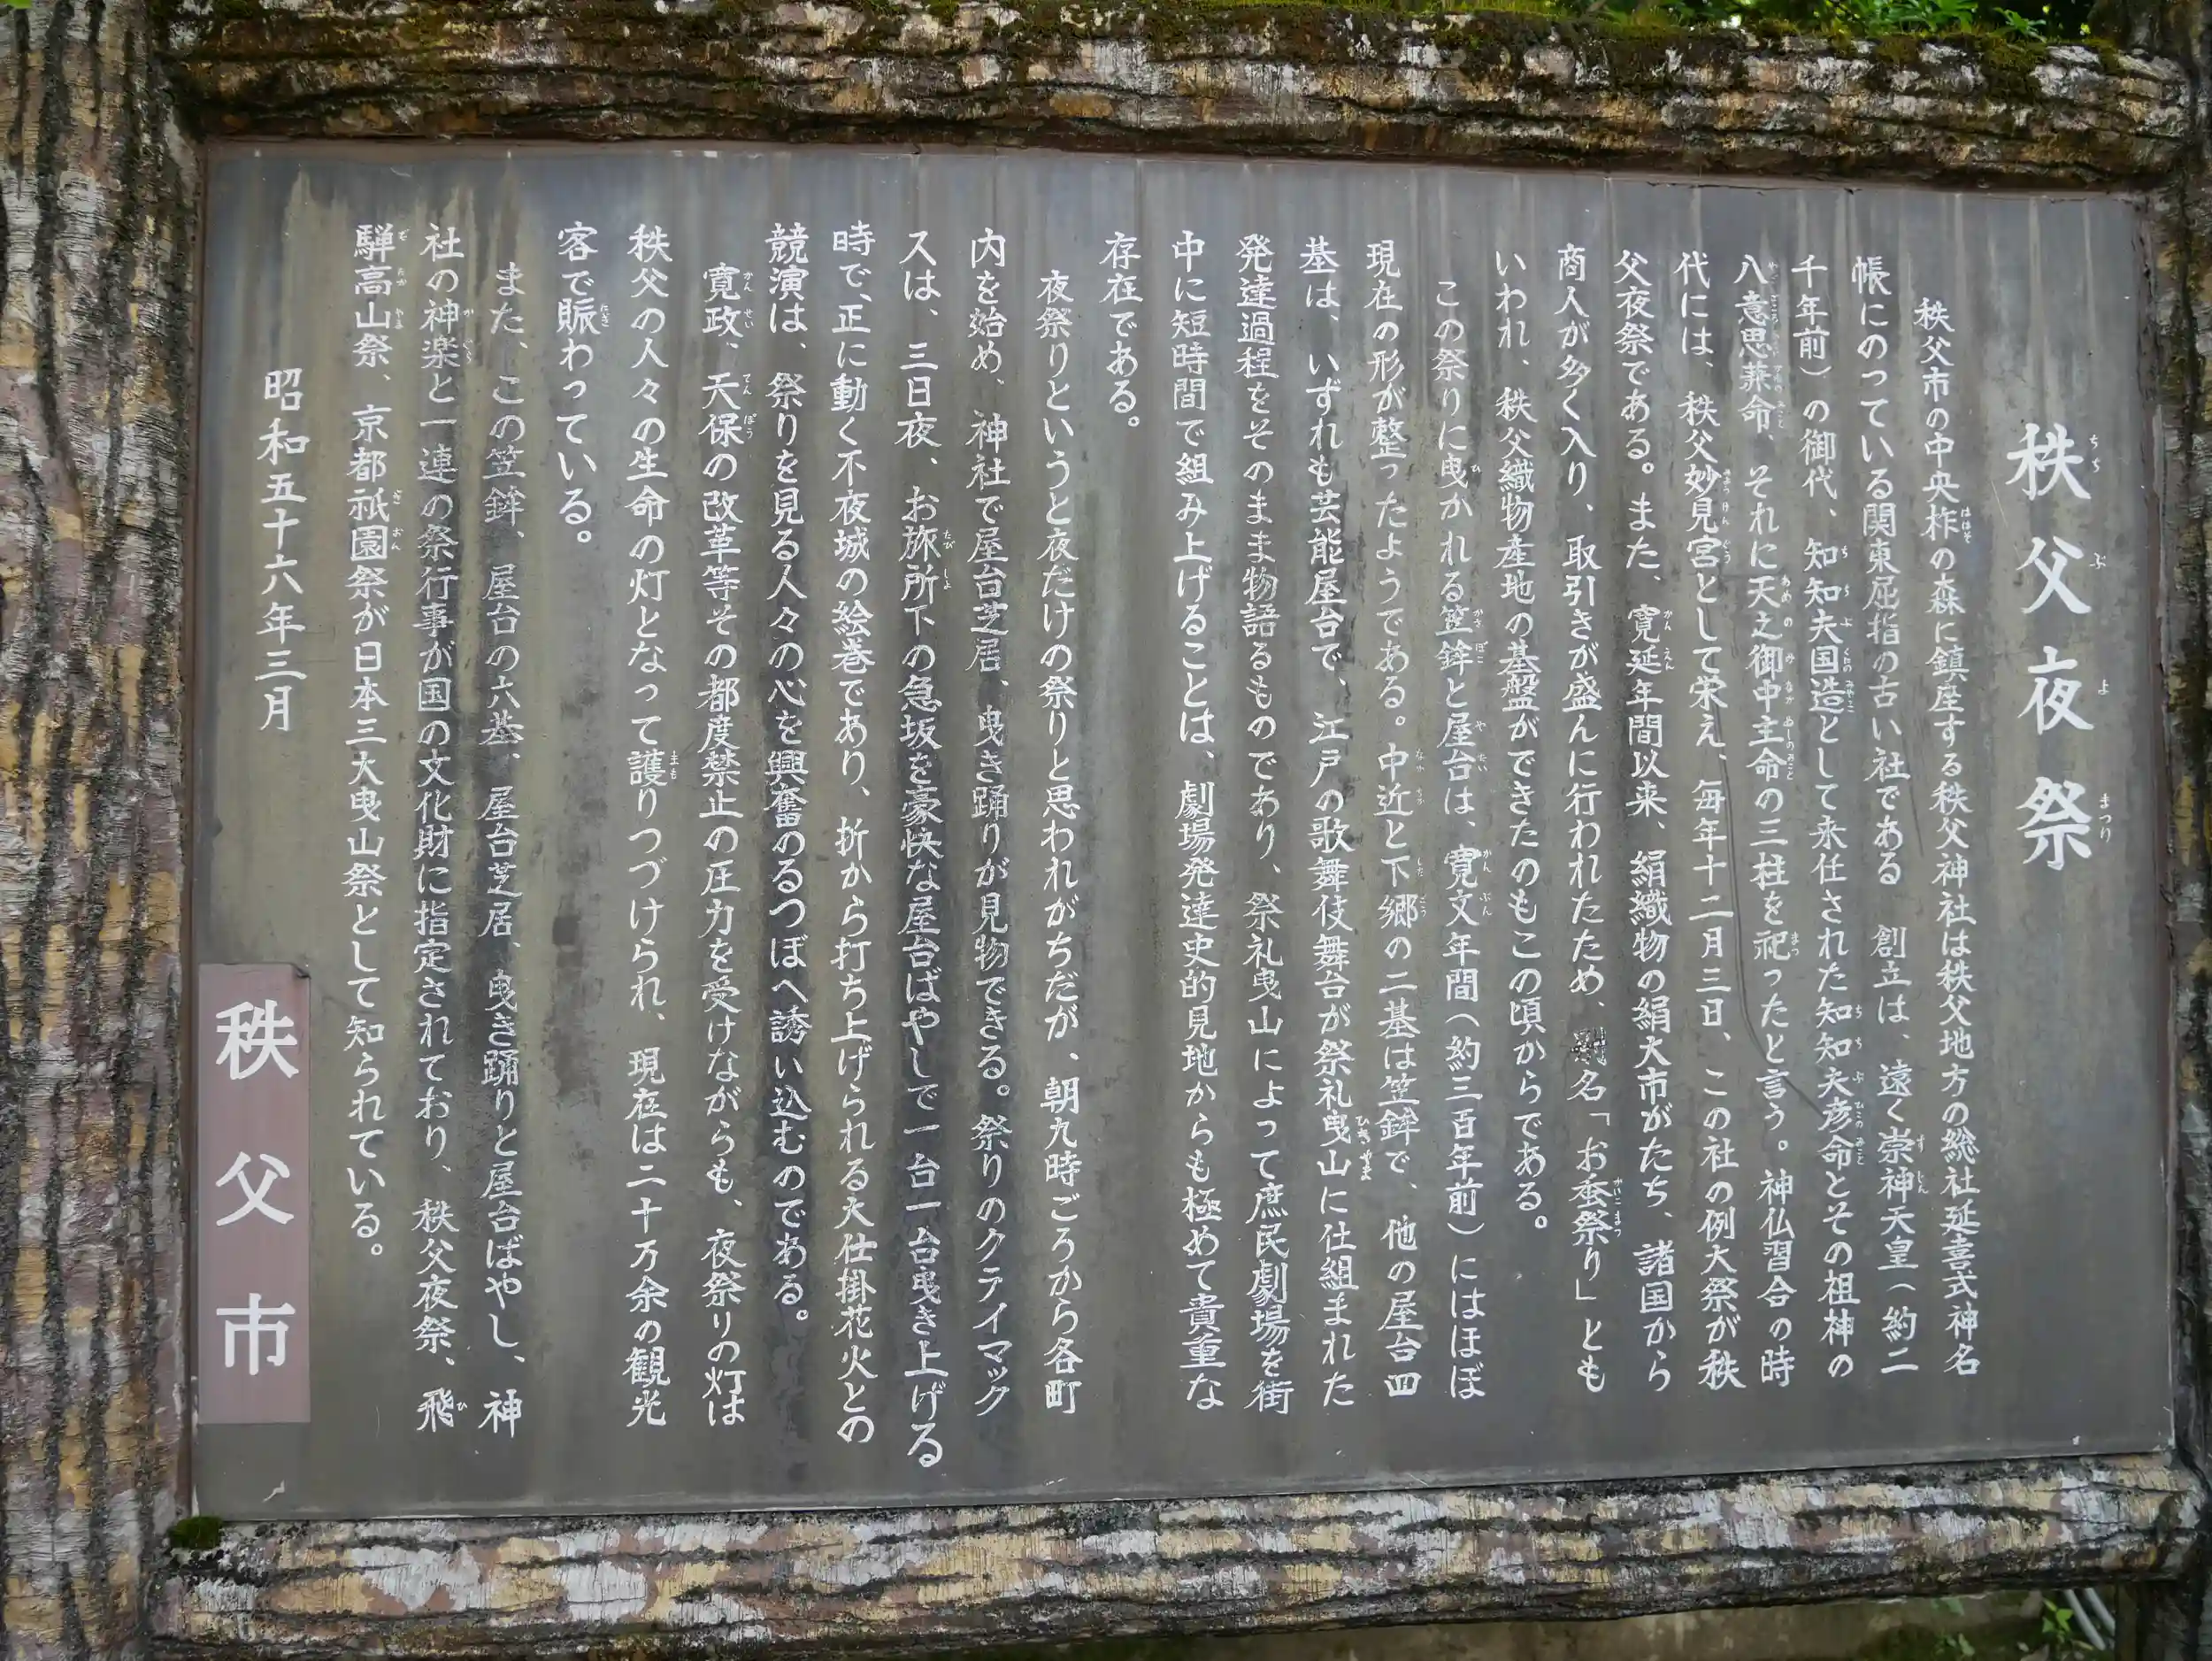 秩父夜祭
秩父市の中央柞の森に鎮座する秩父神社は秩父地方の総社延喜式神名
帳にのっている関東屈指の古い社である 創立は、遠く崇神天皇(約二
千年前)の御代、知知夫国造として来任された知知夫彦命とその祖神の
八意思兼命、それに天之御中主命の三柱を祀ったと言う。神仏習合の時
代には、秩父妙見宮として栄え、毎年十二月三日、この社の例大祭が秩
父夜祭である。また、寛延年間以来、絹織物の絹大市がたち、諸国から
商人が多く入り、取引きが盛んに行われたため、別名「お蚕祭り」とも
いわれ、秩父織物産地の基盤ができたのもこの頃からである。
この祭りに曳かれる笠鉾と屋台は、寛文年間(約三百年前)にはほぼ
現在の形が整ったようである。中近と下郷の二基は笠鉾で、他の屋台四
基は、いずれも芸能屋台で、江戸の歌舞伎舞台が祭礼曳山に仕組まれた
発達過程をそのまま物語るものであり、祭礼曳山によって庶民劇場を街
中に短時間で組み上げることは、劇場発達史的見地からも極めて貴重な
存在である。
夜祭りというと夜だけの祭りと思われがちだが、朝九時ごろから各町
内を始め、神社で屋台芝居、曳き踊りが見物できる。祭りのクライマック
スは、三日夜、お旅所下の急坂を豪快な屋台ばやしで一台一台曳き上げる
時で、正に動く不夜城の絵巻であり、折から打ち上げられる大仕掛花火との
競演は、祭りを見る人々の心を興奮のるつぼへ誘い込むのである。
寛政、天保の改革等その都度禁止の圧力を受けながらも、夜祭りの灯は
秩父の人々の生命の灯となって護りつづけられ、現在は二十万余の観光
客で賑わっている。
また、この笠鉾、屋台の六基、屋台芝居、曳き踊りと屋台ばやし、神
社の神楽と一連の祭行事が国の文化財に指定されており、秩父夜祭、飛
騨高山祭、京都祇園祭が日本三大曳山祭として知られている。
昭和五十六年三月
秩父市